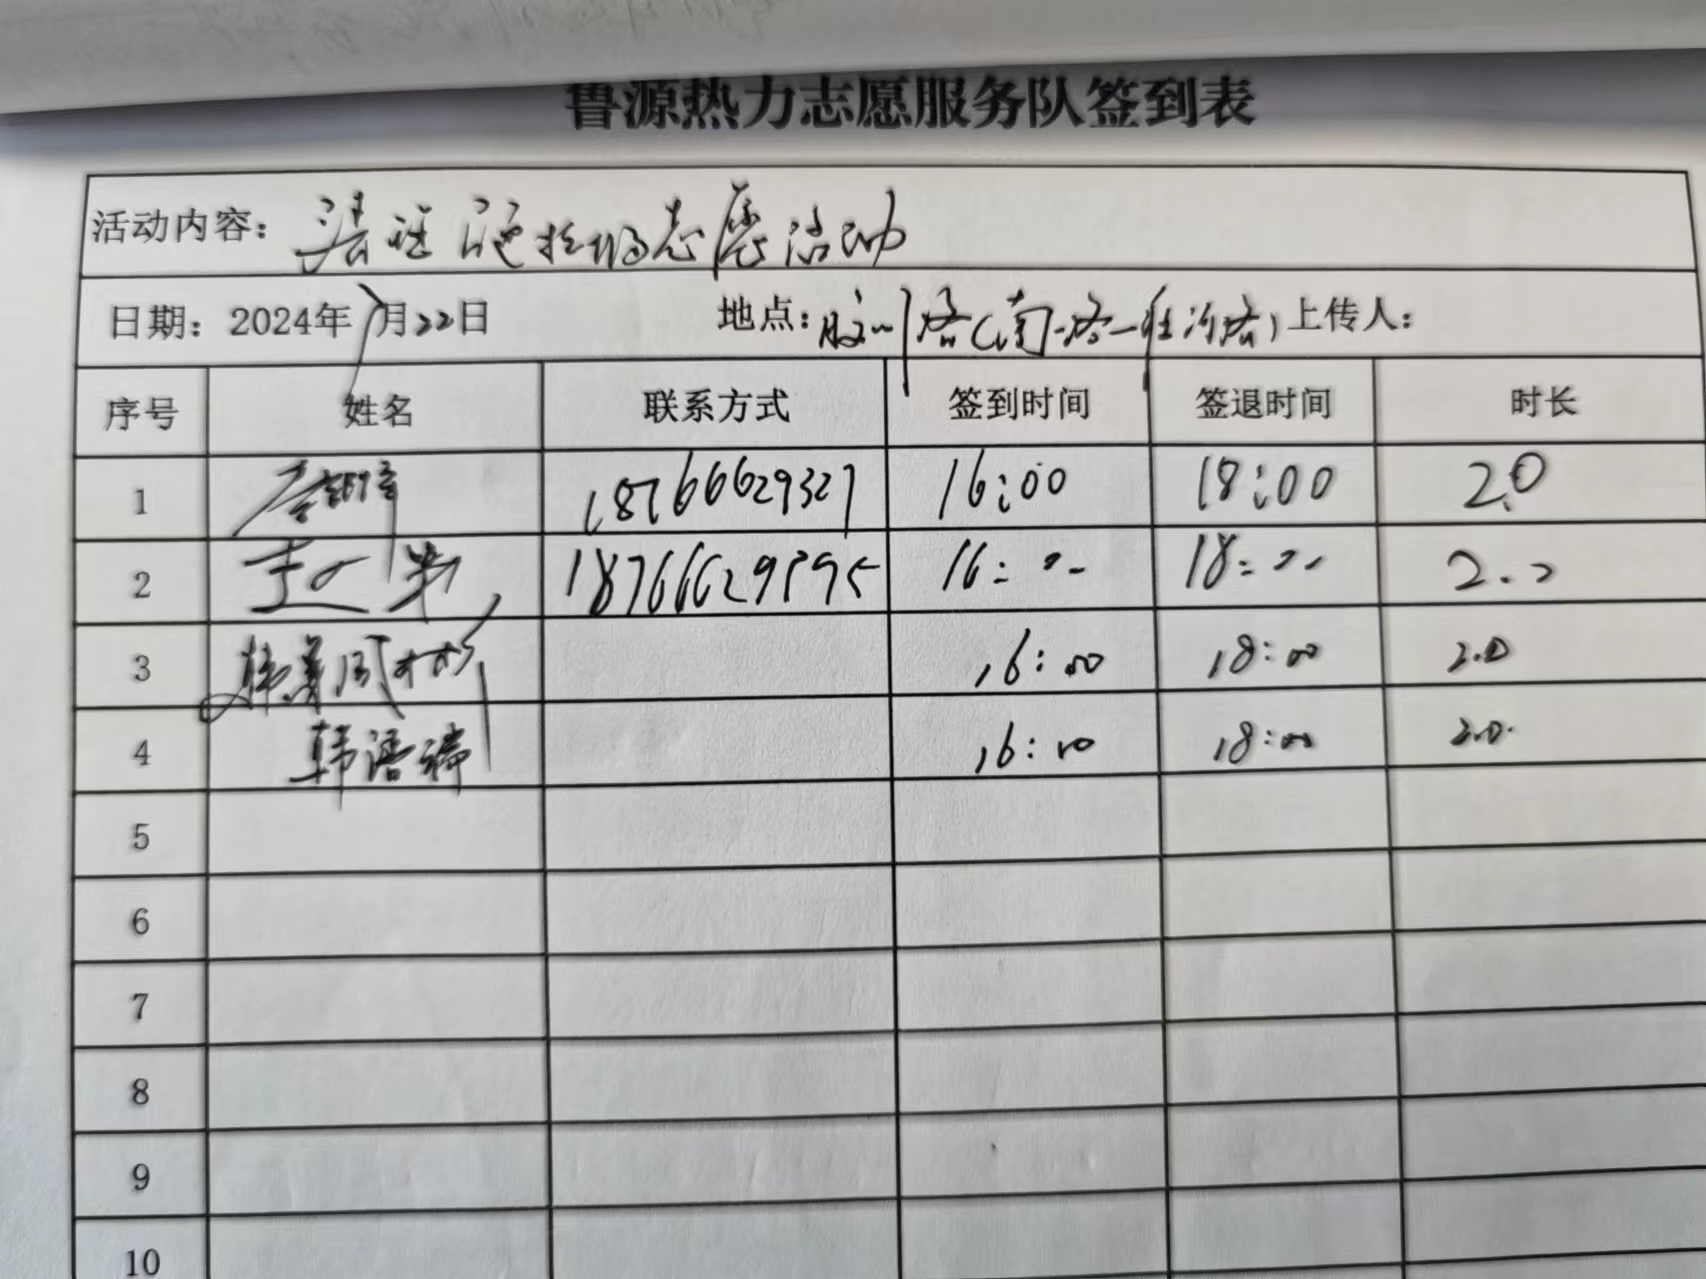 鲁源热力志愿服务队签到表
活动内容: 志愿活动
日期: 2024年7月22日 地点: 上传人:
序号 姓名 联系方式 签到时间 签退时间 时长
1 18766629327 16:00 18:00 2.0
2 16:00 18:00 2.0
3 16:00 18:00 2.0
4 韩语瑞 16:00 18:00 2.0
5
6
7
8
9
10